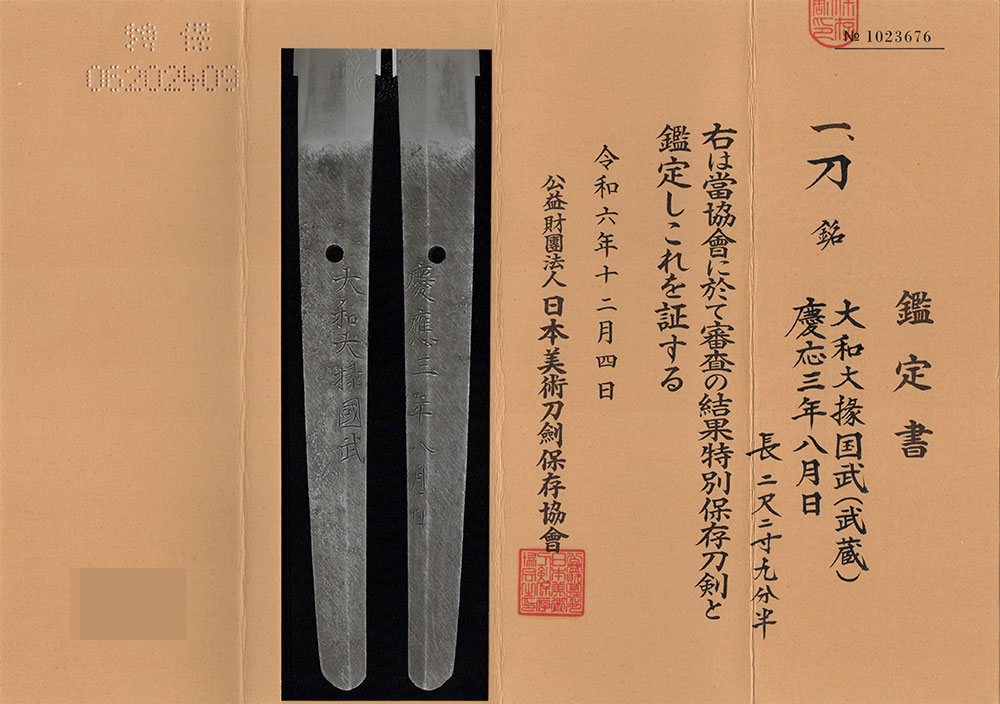 № 1023676
鑑定書
一、刀 銘 大和大掾国武(武蔵)
慶応三年八月日
長二尺二寸九分半
右は當協會に於て審査の結果特別保存刀剣と
鑑定しこれを証する
令和六年十二月四日
公益財團法人日本美術刀劍保存協會
慶應三年八月日
大和大掾國武
特保
06202409